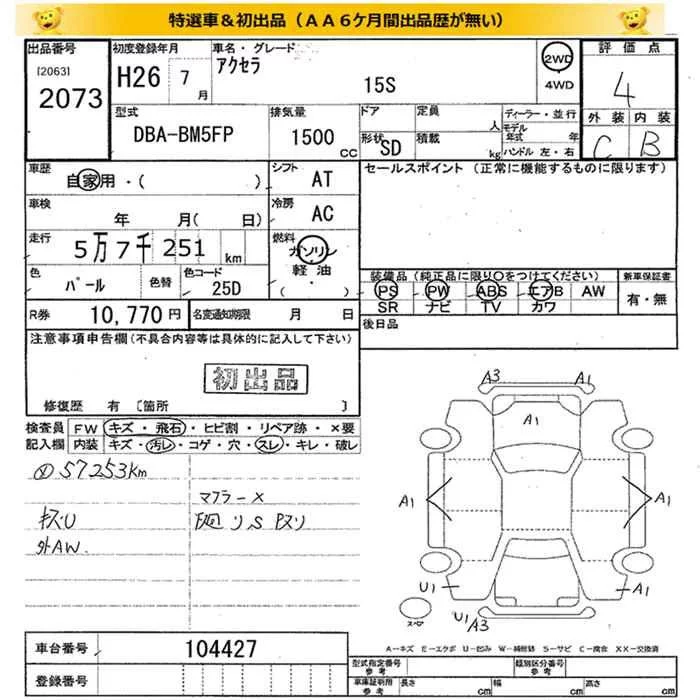 特選車＆初出品（ＡＡ６ケ月間出品歴が無い）
出品番号
[2063]
2073
初度登録年月
H26 7月
車名・グレード
アクセラ
15S
2WD
4WD
評価点
4
外装 内装
C B
型式
DBA-BM5FP
排気量
1500 CC
ドア
定員
人
形状
SD
積載
kg
ディーラー・並行
モデル年式 年
ハンドル 左・右
車歴
自家用・( )
シフト
AT
セールスポイント (正常に機能するものに限ります)
車検
年 月( 日)
冷房
AC
走行
5万7千251km
燃料
ガソリン
軽油
( )
色
パール
色替
色コード
25D
装備品 (純正品に限り○をつけてください)
新車保証書
PS PW ABS エアB AW
有・無
SR ナビ TV カワ
R券
10,770円
名変通知期限 月 日
後日品
注意事項申告欄(不具合内容等は具体的に記入して下さい)
初出品
修復歴 有 〔箇所 〕
検査員
記入欄
FW キズ・飛石・ヒビ割・リペア跡・×要
内装 キズ・汚レ・コゲ・穴・スレ・キレ・破レ
57253km
マフラー×
キズU
外AW.
A3
A1
A1
A1
A1
U1
A1
U1
A3
A－キズ E－エクボ U－凹み W－補修跡 S－サビ C－腐食 XX－交換済
車台番号
104427
登録番号
型式指定番号
参考
類別区分番号
参考
車庫証明用
参考
長さ cm
幅 cm
高さ cm